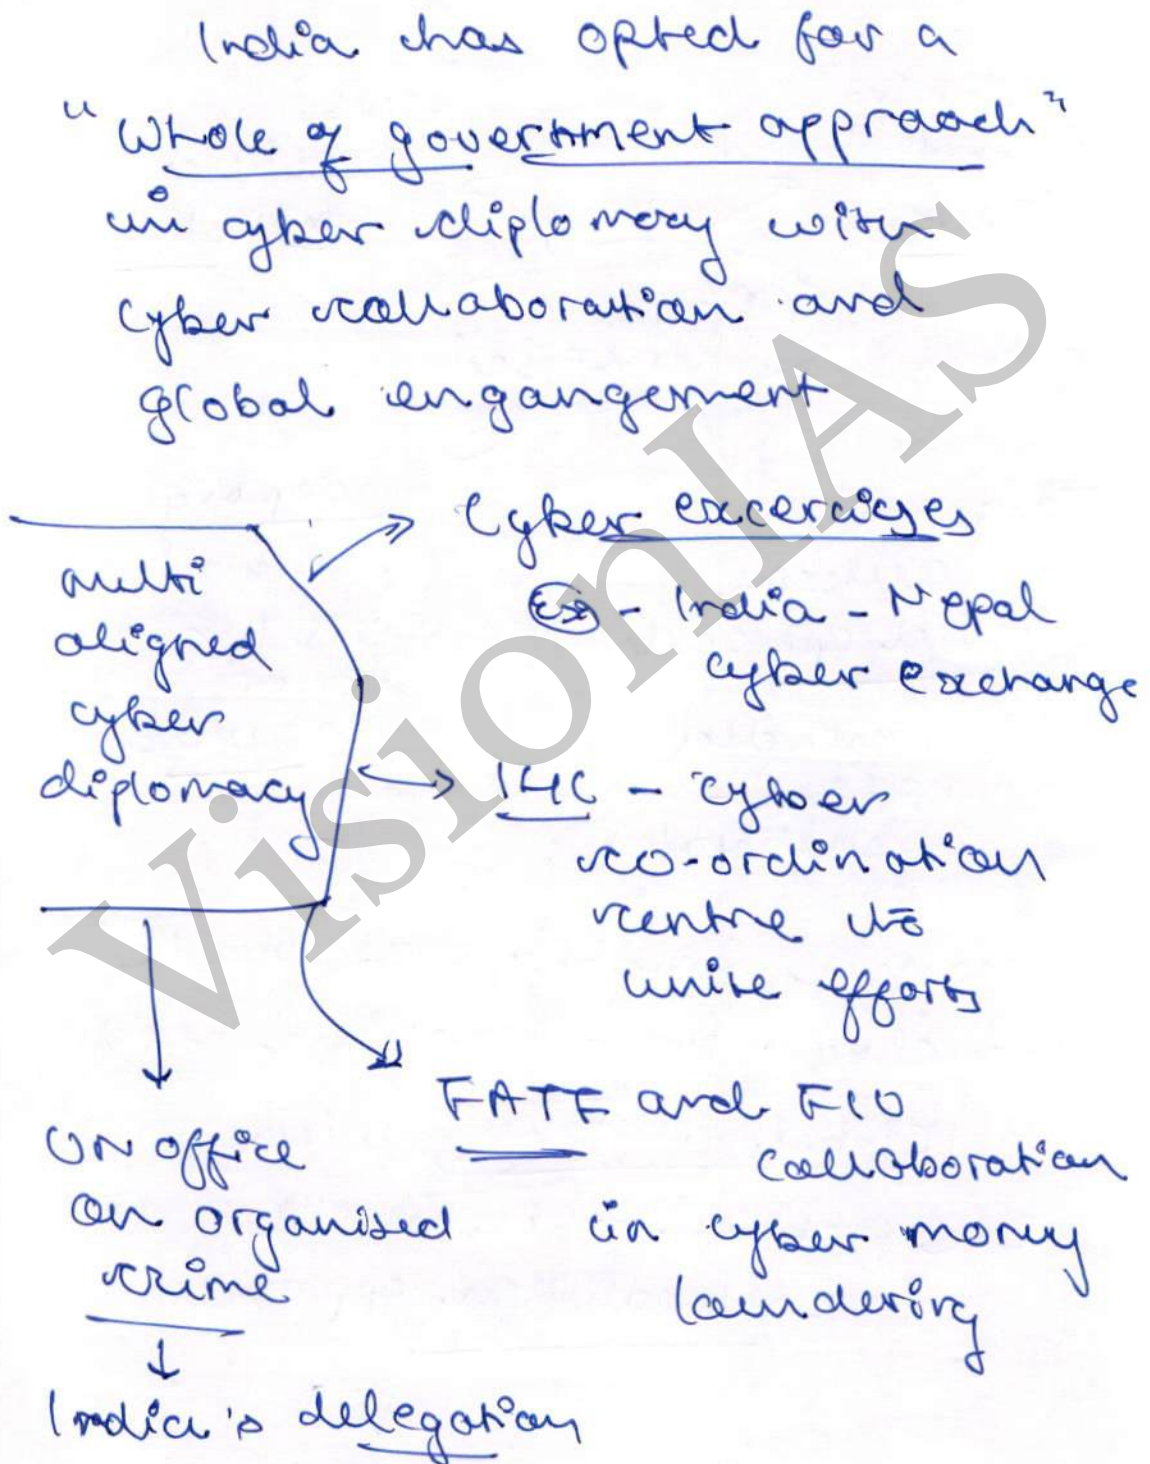 India has opted for a
"Whole of government approach"
in cyber diplomacy with
cyber collaboration and
global engangement
multi
aligned
cyber
diplomacy
Cyber excercises
Ex - India - Nepal
cyber exchange
I4C - cyber
co-ordination
centre to
unite efforts
FATF and FIU
collaboration
in cyber money
laundering
UN office
on organised
crime
India's delegation
VisionIAS